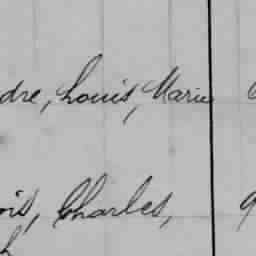 dre, Louis, Marie
ois, Charles, 9
h